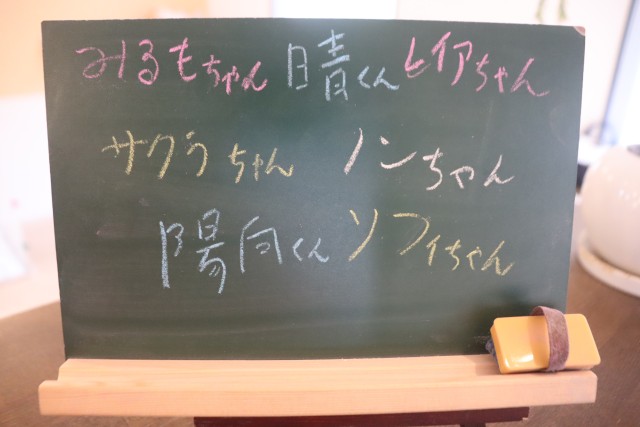 みるもちゃん 晴くん ヒイアちゃん
サクラちゃん ノンちゃん
陽向くん ソフィちゃん